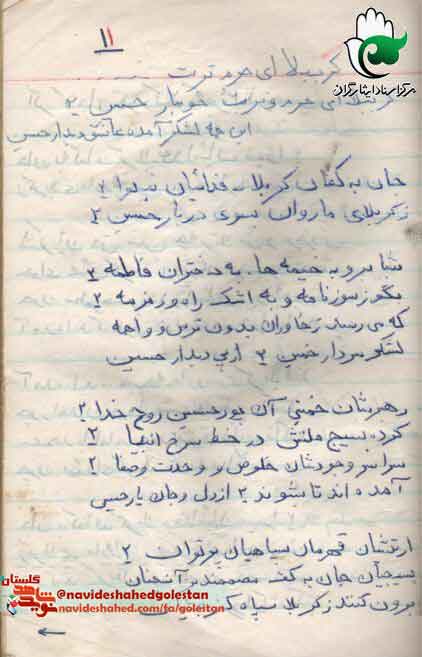 ۱۱
کربلا ای حرم و تربت
کربلا ای حرم و تربت خونبار حسین ۲
این همه لشگر آمده عاشق دیدار حسین
جان به کفان کربلا، فدائیان پذیرا ۲
ز کربلای ما روان بسوی دربار حسین ۲
شبا سر و به خیمه ها، به دختران فاطمه ۲
بگو ز سوزنامه و به اشک راه و زمزمه ۲
که می رسد ز خاوران بدون ترس و واهمه
لشگر سردار خمینی ۲ از پی دیدار حسین
رهبرشان خمینی آن پور حسین روح خدا ۲
کرده بسیج ملتش در خط سرخ انبیا ۲
سراسر وجودشان خلوص و وحدت و صفا ۲
آمده اند تا شوند ۲ از دل و جان یار حسین
ارتشیان قهرمان سپاهیان پرتوان ۲
بسیجیان جان به کف مصمم
برون کنند ز کربلا سپاه کفر
مرکز اسناد ایثارگران
گلستان
نوید شاهد
@navideshahedgolestan
navideshahed.com/fa/golestan